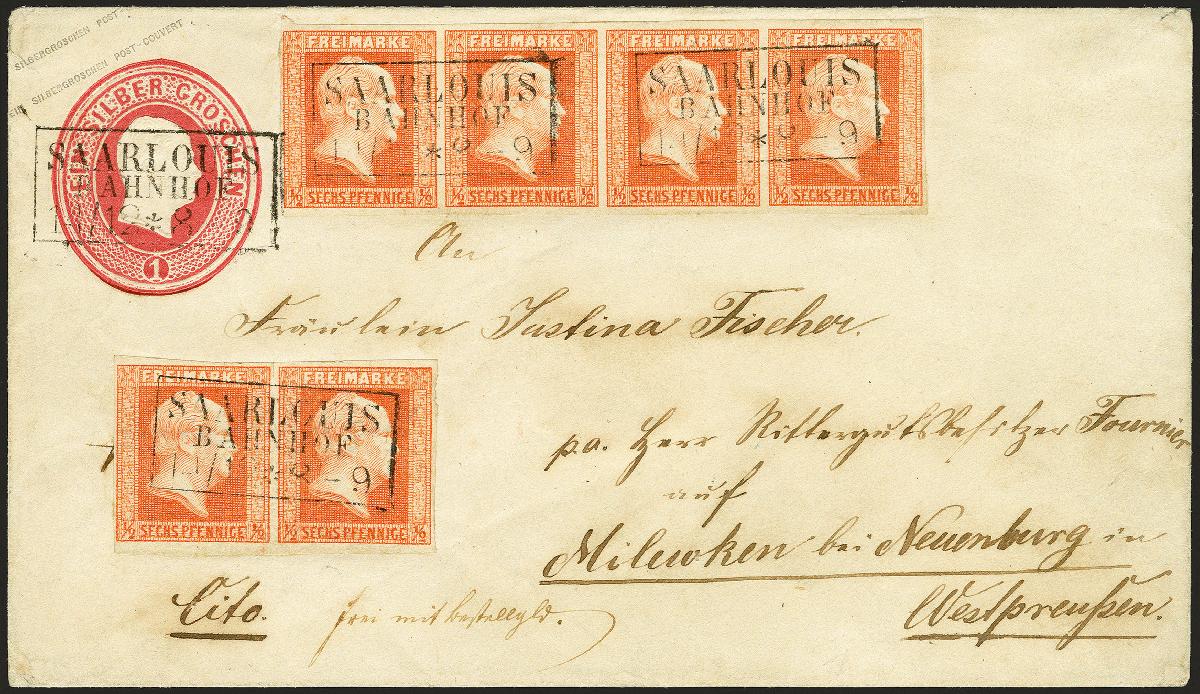 SILBERGROSCHEN POST-
SILBERGROSCHEN POST-COUVERT
EIN SILBER GROSCHEN
1
SAARLOUIS
BAHNHOF
FREIMARKE FREIMARKE FREIMARKE FREIMARKE
SAARLOUIS SAARLOUIS
BAHNHOF BAHNHOF
* 8 - 9 * 8 - 9
½ SECHS PFENNIGE ½ ½ SECHS PFENNIGE ½ ½ SECHS PFENNIGE ½ ½ SECHS PFENNIGE ½
An
Fräulein Justina Fischer.
FREIMARKE FREIMARKE
SAARLOUIS
BAHNHOF
* 8 - 9
½ SECHS PFENNIGE ½ ½ SECHS PFENNIGE ½
p.a. Herr Rittergutsbesitzer Fournier
auf
Milewken bei Neuenburg in
Westpreußen.
Cito.
frei mit bestellgld.